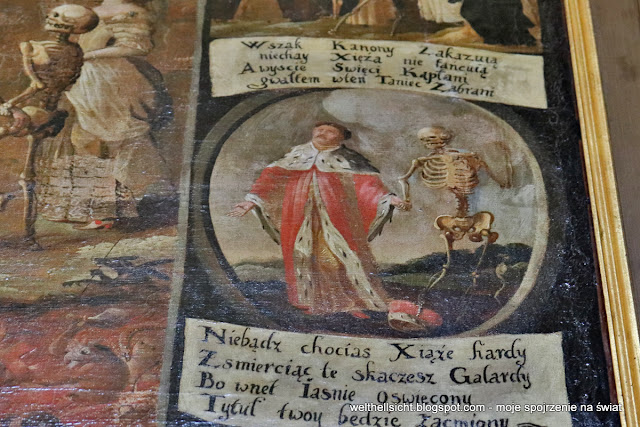 Wszak Kanony Zakazuią
niechay Xięza nie tancuią
Awyscie Swięci Kapłani
gwałtem wten Taniec Zabrani
Niebądz chocias Xiąze hardy
Zsmierciąć te skaczesz Galardy
Bo wnet Iasnie oswiecony
Tytuł twoy będzie zacmiony
welthellsicht.blogspot.com - moje spojrzenie na świat